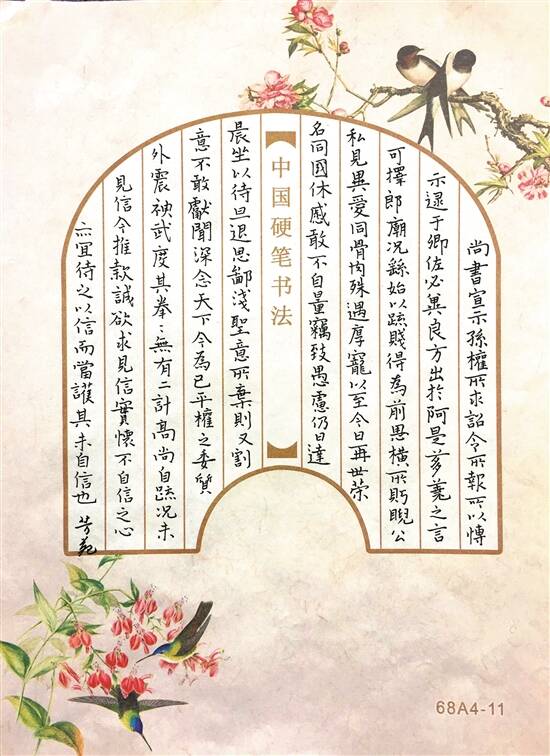 尚書宣示孫權所求詔令所報所以博
示逮于卿佐必異良方出於阿是芻蕘之言
可擇郎廟况繇始以疏賤得為前恩橫所眄睨公
私見異愛同骨肉殊遇厚寵以至今日再世榮
名同國休慼敢不自量竊致愚慮仍日達
中国硬笔书法
晨坐以待旦退思鄙淺聖意所棄則又割
意不敢獻聞深念天下今為已平權之委質
外震神武度其拳〻無有二計高尚自疏况未
見信今推款誠欲求見信實懷不自信之心
亦宜待之以信而當護其未自信也
68A4-11